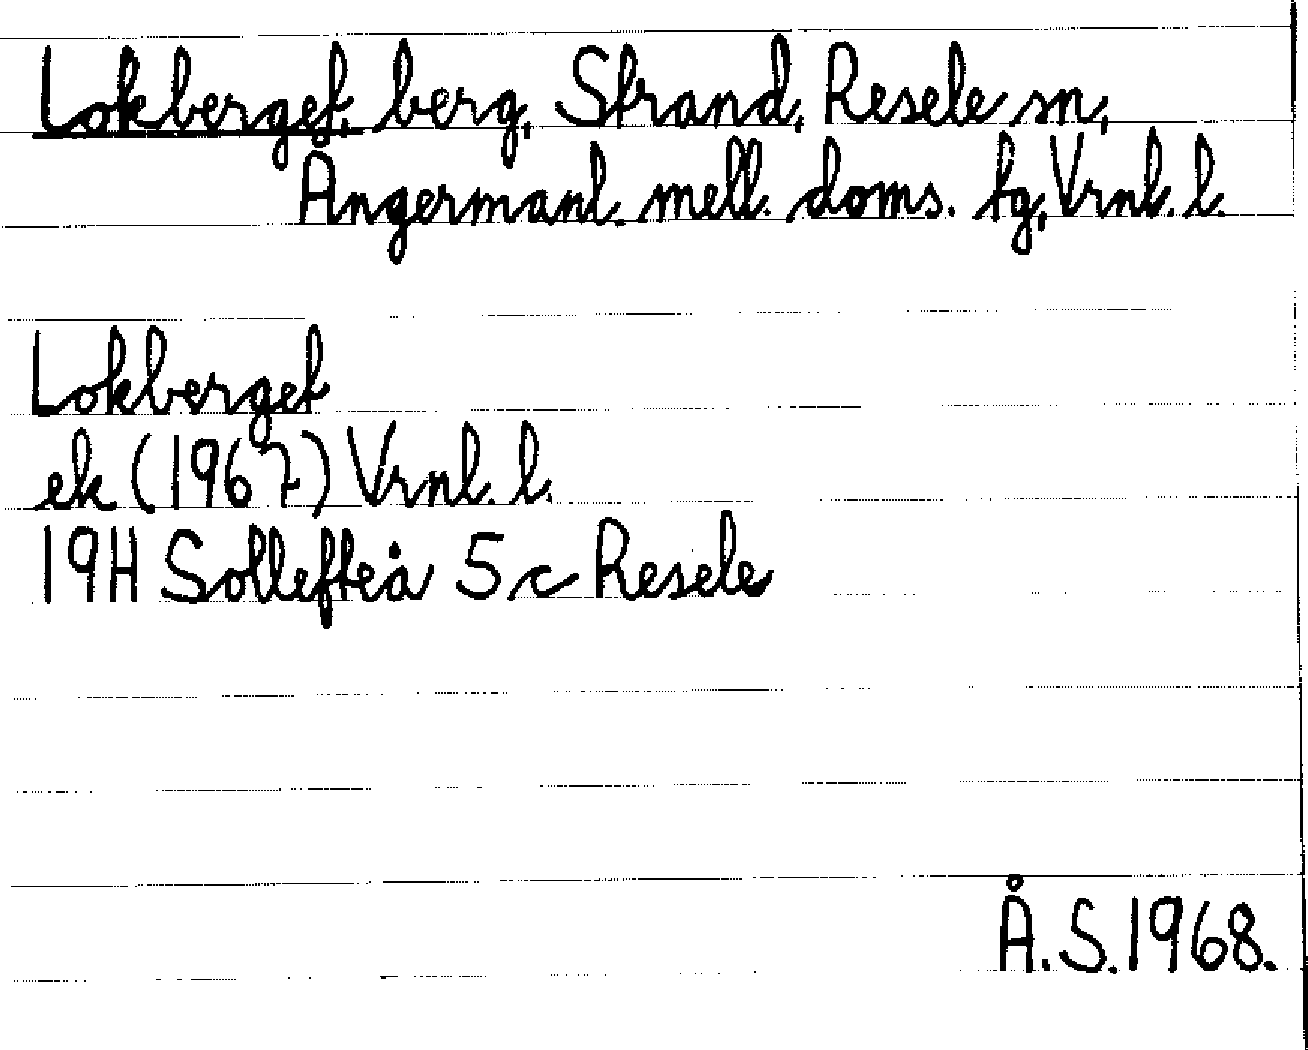 Lokberget, berg, Strand, Resele sn,
Ångermanl. mell. doms. tg, Vrnl. l.
Lokberget
ek (1967) Vrnl. l.
19H Sollefteå 5c Resele
Å.S. 1968.